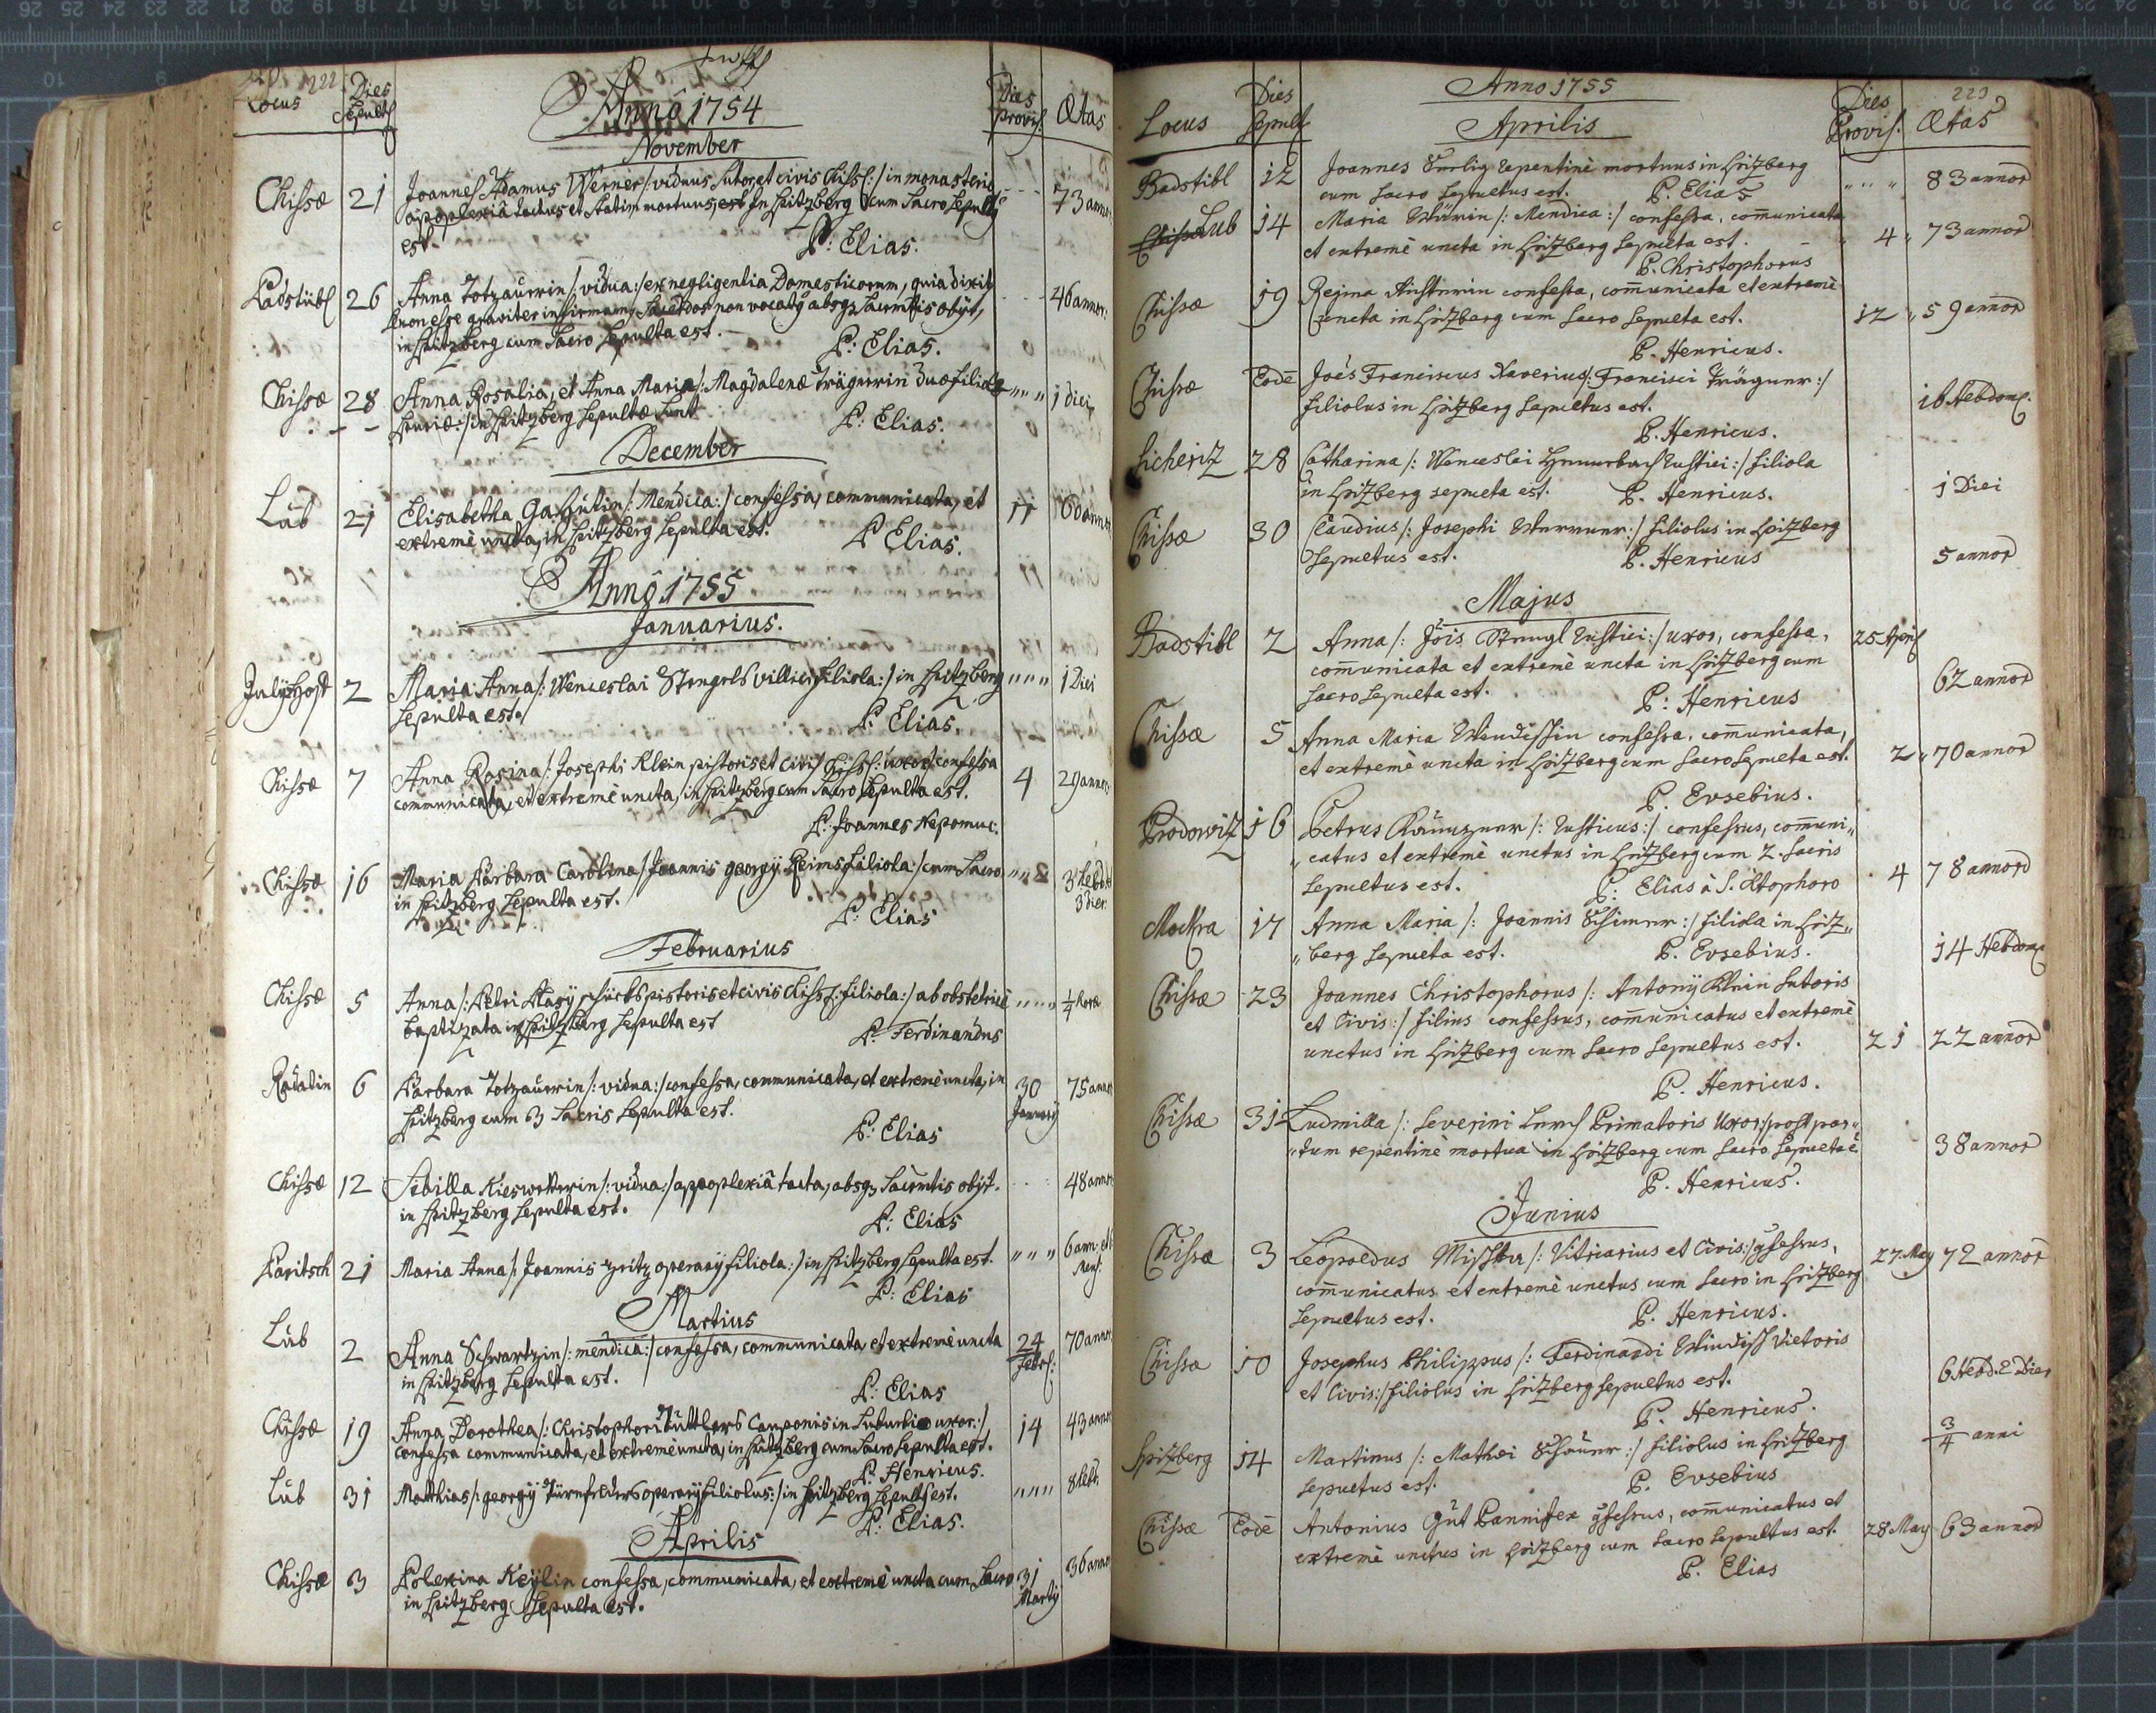 222
Locus Dies Sepult. Anno 1754 Dies Provis. Ætas
November
Chissæ 21 Joannes Adamus Werner /: viduus Sutor et civis Chiss: :/ in monasterio - - - 73 annor.
apoplexiâ tactus et statim mortuus, est in Spitzberg cum Sacro Sepultus
est. P: Elias.
Padstübl 26 Anna Totzauerin /: vidua :/ ex negligentia Domesticorum, quia dixit - - - 46 annor.
non esse graviter infirmam, Sacerdos non vocatus absq; Sacrmtis obijt,
in Spitzberg cum Sacro Sepulta est. P: Elias.
Chissæ 28 Anna Rosalia, et Anna Maria /: Magdalenæ Trägnerin duæ filiolæ " " " 1 diei
spuriæ :/ in Spitzberg Sepultæ sunt. P: Elias.
December
Lub 21 Elisabetha /: Mendica :/ confessa, communicata, et 11 60 annor.
extremè uncta, in Spitzberg Sepulta est. P: Elias.
Anno 1755
Januarius.
2 Maria Anna /: Wenceslai Stengels villici filiola :/ in Spitzberg " " " 1 Diei
Sepulta est. P: Elias.
Chissæ 7 Anna Rosina /: Josephi Klein pistoris et civis Chiss: uxor :/ confessa 4 29 annor.
communicata, et extremè uncta, in Spitzberg cum Sacro Sepulta est.
P: Joannes Nepomuc:
Chissæ 16 Maria Barbara Carolina /: Joannis georgij Heims filiola :/ cum Sacro " " " 3 hebd.
in Spitzberg Sepulta est. 3 dier.
P: Elias
Februarius
Chissæ 5 Anna /: Petri pistoris et civis Chiss: filiola :/ ab obstetrice " " " 1/4 horæ
baptizata in Spitzberg Sepulta est P: Ferdinandus
Radatin 6 Barbara Totzauerin /: vidua :/ confessa, communicata, et extremè uncta, in 30 75 annor.
Spitzberg cum 3 Sacris Sepulta est. January
P: Elias
Chissæ 12 Sibilla /: vidua :/ apoplexiâ tacta, absq; Sacrmtis obijt. 48 annor.
in Spitzberg Sepulta est. P: Elias
Paritsch 21 Maria Anna /: Joannis operarij filiola :/ in Spitzberg Sepulta est. " " " 6 ann. et
P: Elias
Martius
Lub 2 Anna Schwartzin /: mendica :/ confessa, communicata, et extremè uncta 24 70 annor.
in Spitzberg Sepulta est. Febr:
P: Elias
Chissæ 19 Anna Dorothea /: Christophori Cauponis in Suburbio uxor :/ 14 43 annor.
confessa communicata, et extremè uncta, in Spitzberg cum Sacro Sepulta est.
P: Henricus.
Lub 31 Matthias /: georgij operarij filiolus :/ in Spitzberg Sepultus est. " " " 8 hebd.
P: Elias.
Aprilis
Chissæ 3 Polexina Keylin confessa, communicata, et extremè uncta cum Sacro 31 36 annor.
in Spitzberg Sepulta est. Martij
223
Anno 1755
Locus Dies Sepult. Aprilis Dies Provis. Ætas
Badstibl 12 Joannes repentinè mortuus in Spitzberg
cum Sacro Sepultus est. P. Elias " " " 83 annor
Chissæ Lub 14 Maria /: Mendica :/ confessa, com̄unicata
et extremè uncta in Spitzberg Sepulta est. 4 " 73 annor
P. Christophorus
Chissæ 19 Regina confessa, com̄unicata et extremè
uncta in Spitzberg cum Sacro Sepulta est. 12 " 59 annor
P. Henricus.
Chissæ Eodē Joēs Franciscus Xaverius /: Francisci Trägner :/
filiolus in Spitzberg Sepultus est. 16 Hebdom.
P. Henricus.
Sicheritz 28 Catharina /: Wenceslai rustici :/ filiola
in Spitzberg sepulta est. P. Henricus. 1 Diei
Chissæ 30 Claudius /: Josephi :/ filiolus in Spitzberg
Sepultus est. P. Henricus 5 annor
Majus
Badstibl 2 Anna /: Jois Stengl rustici :/ uxor, confessa, 25 April
com̄unicata et extremè uncta in Spitzberg cum
Sacro Sepulta est. P: Henricus 62 annor
Chissæ 5 Anna Maria Windischin confessa, com̄unicata,
et extremè uncta in Spitzberg cum Sacro Sepulta est. 2 " 70 annor
P. Eusebius.
Prodowitz 16 Petrus /: rusticus :/ confessus, com̄uni„
„catus et extremè unctus in Spitzberg cum 2. Sacris
Sepultus est. P: Elias à S. Xtophoro 4 78 annord
Mockra 17 Anna Maria /: Joannis :/ filiola in Spitz„
„berg Sepulta est. P. Eusebius. 14 Hebdom.
Chissæ 23 Joannes Christophorus /: Antonij Klein Sutoris
et Civis :/ filius confessus, com̄unicatus et extremè
unctus in Spitzberg cum Sacro Sepultus est. 21 22 annor
P. Henricus.
Chissæ 31 Ludmilla /: Severini Primatoris Uxor :/ post par„
„tum repentinè mortua in Spitzberg cum Sacro Sepulta ē. 38 annor
P. Henricus.
Junius
Chissæ 3 Leopoldus /: Vitriarius et Civis :/ gfessus, 27 May 72 annor
com̄unicatus et extremè unctus cum Sacro in Spitzberg
Sepultus est. P. Henricus.
Chissæ 10 Josephus Philippus /: Ferdinandi Windisch Vietoris
et Civis :/ filiolus in Spitzberg Sepultus est. 6 Hebd. 2 Dier
P. Henricus.
Spitzberg 14 Martinus /: Mathæi :/ filiolus in Spitzberg 3/4 anni
Sepultus est. P. Eusebius
Chissæ Eodē Antonius Gut Pannifex gfessus, com̄unicatus et 28 May 63 annor
extremè unctus in Spitzberg cum Sacro Sepultus est.
P. Elias